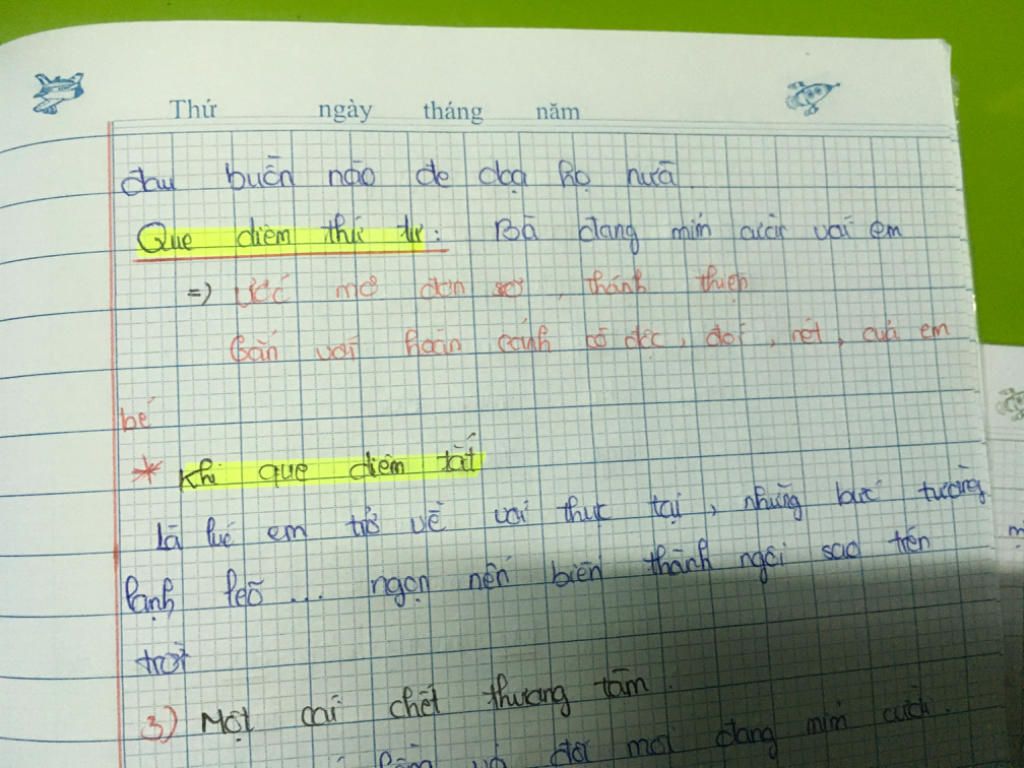 Thứ ngày tháng năm
đau buồn nào đe dọa họ nữa
Que diêm thứ tư: Bà đang mỉm cười với em
=) Ước mơ đơn sơ, thánh thiện
Gắn với hoàn cảnh cô độc, đói, rét, của em
bé
* Khi que diêm tắt
là lúc em trở về với thực tại, những bức tường
lạnh lẽo ... ngọn nến biến thành ngôi sao trên
trời
3) Một cái chết thương tâm.
đôi môi đang mỉm cười.